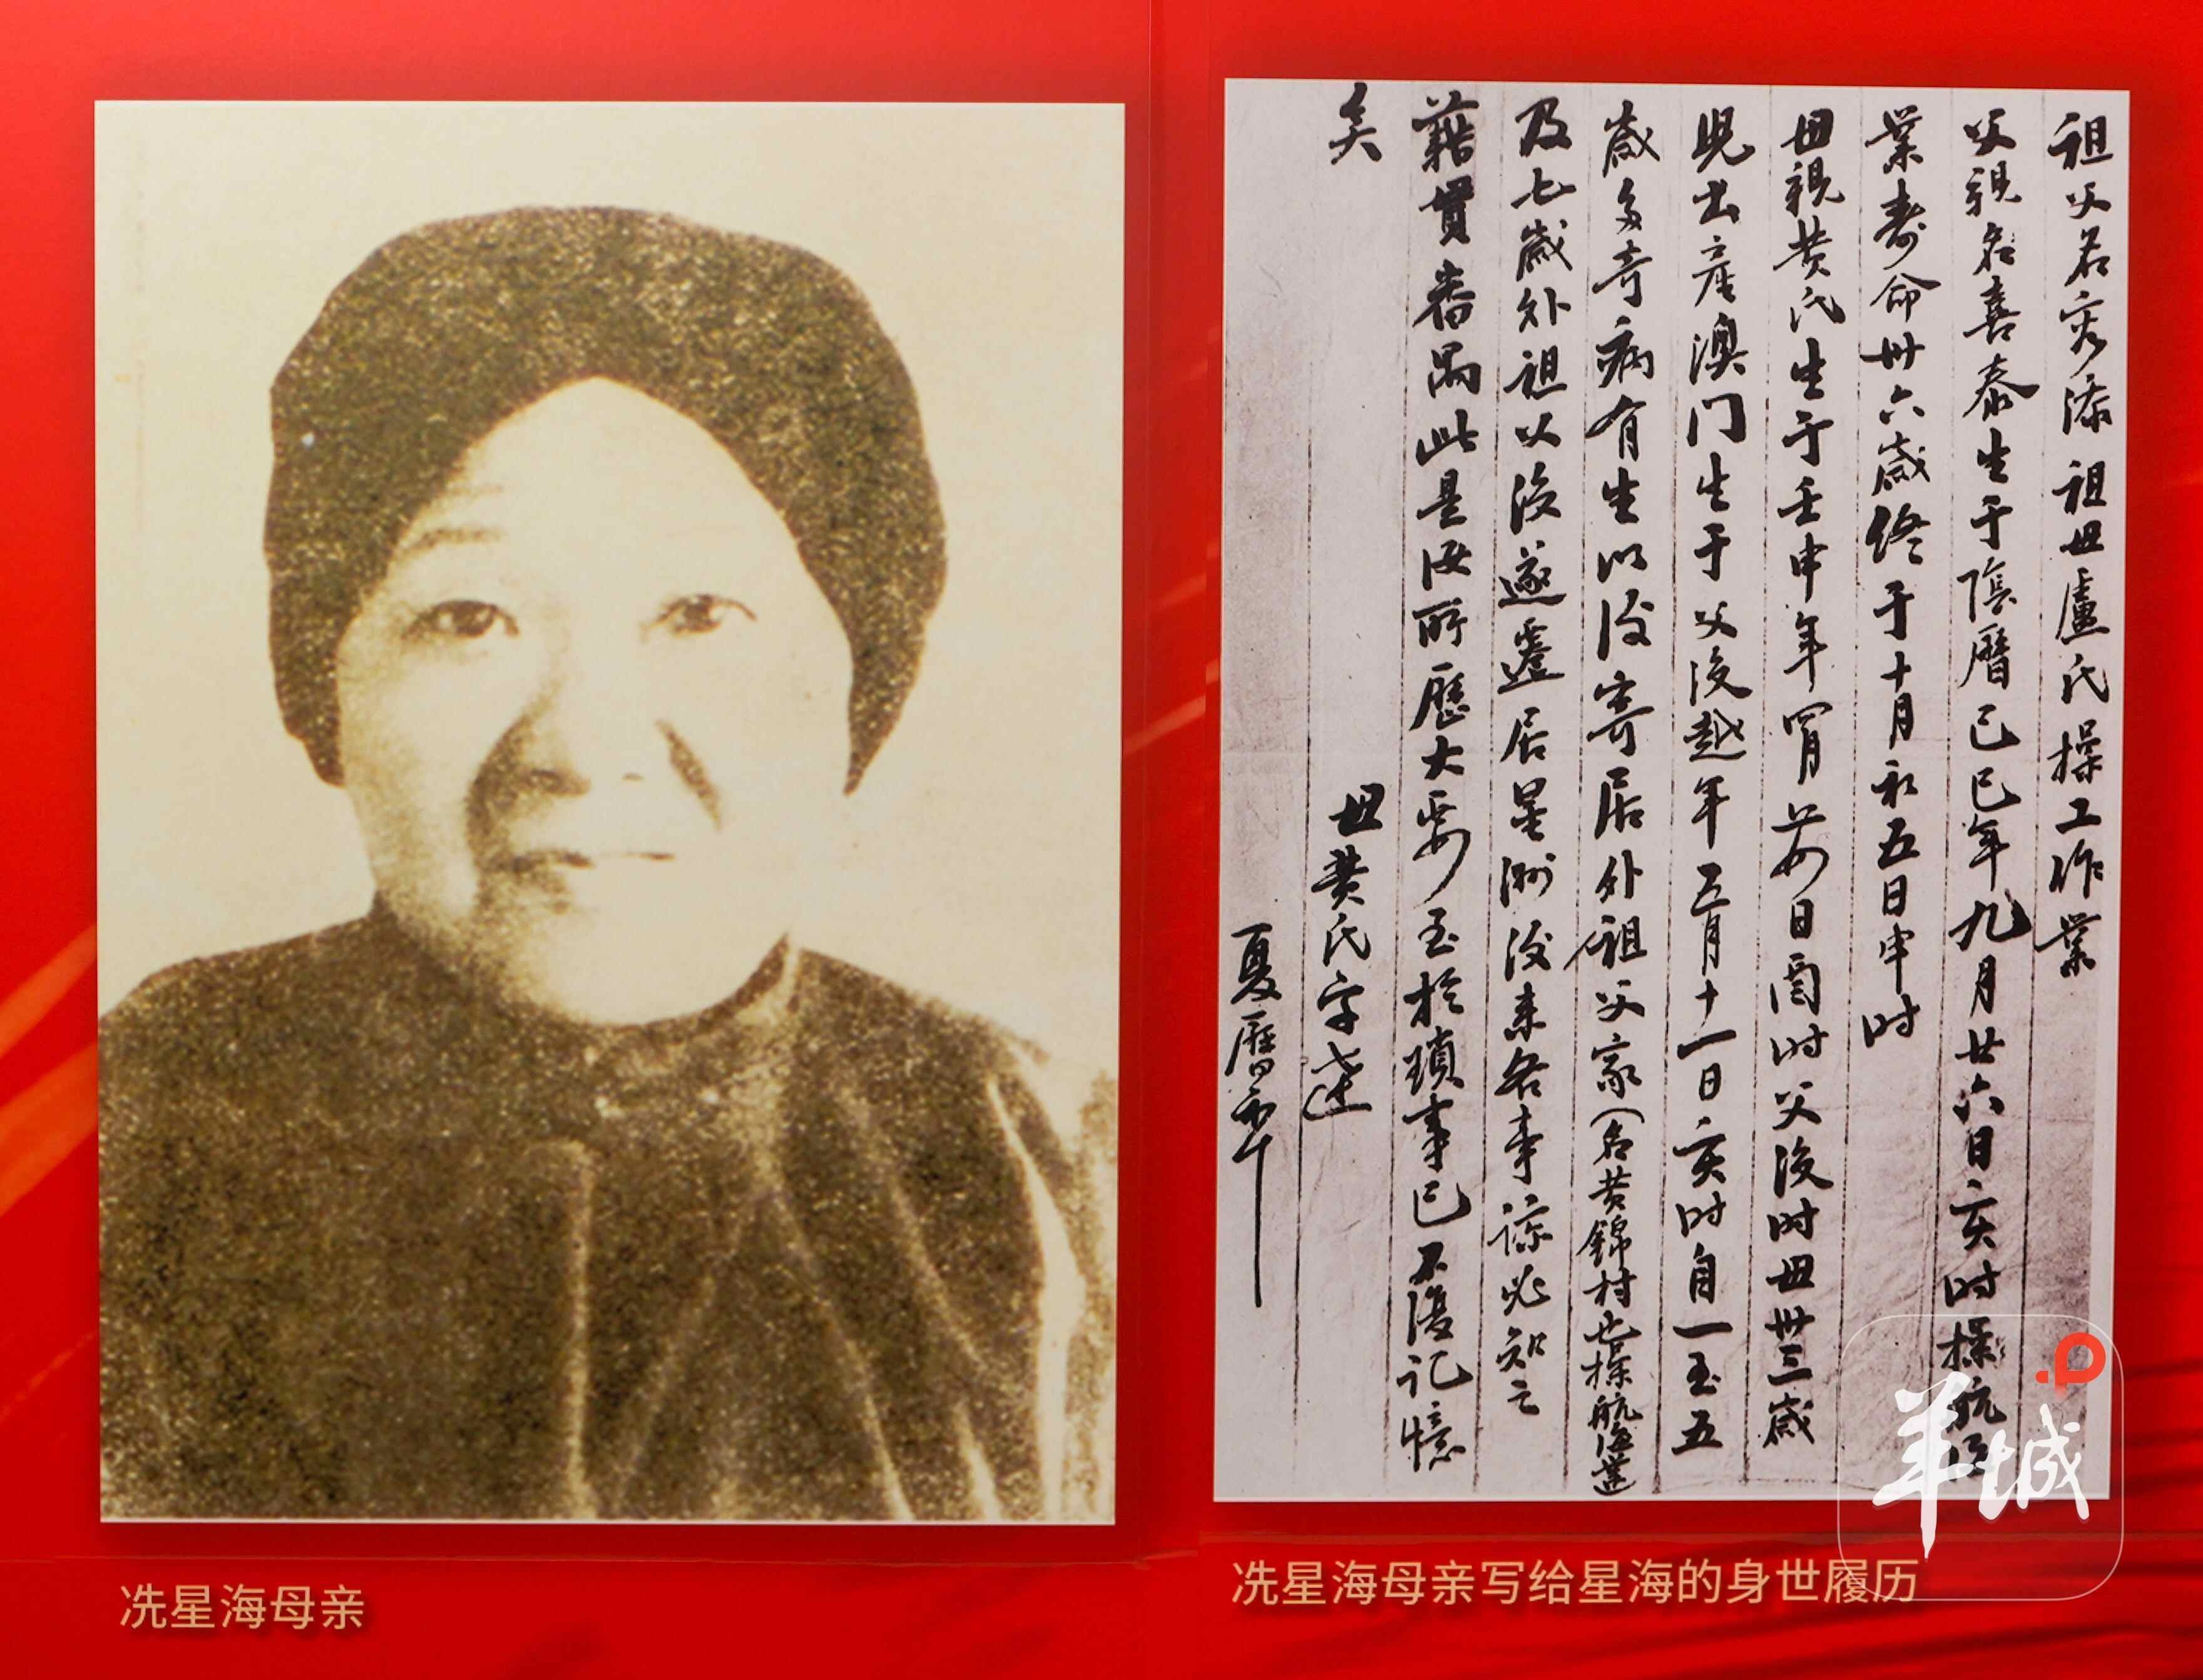 祖父名亥添祖母盧氏操工作業
父親名喜泰生于陰曆己巳年九月廿六日亥时操航海
業寿命卅六歲終于十月初五日申时
母親黄氏生于壬申年 日酉时父没时母卅三歲
児出産澳门生于父没越年五月十一日亥时自一至五
歲多奇病有生以後寄居外祖父家(名黄錦村也操航海業
及七歲外祖以没遂遷居星洲後来各事諒必知之
藉貫番禺此是汝所歷大畧至於瑣事已不復記憶
矣
母黄氏字
夏曆
冼星海母亲
冼星海母亲写给星海的身世履历
羊城